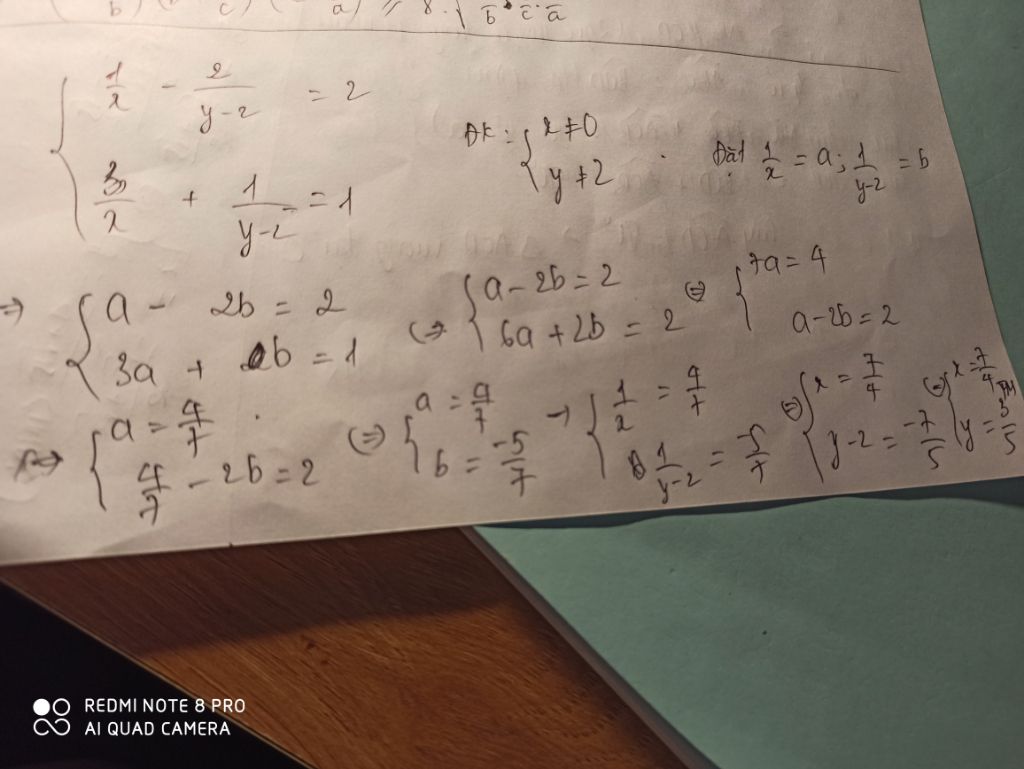 b c a ≥ 8. √ b . c . a
{ 1/x - 2/(y-2) = 2
{ 3/x + 1/(y-2) = 1
ĐK: { x ≠ 0
{ y ≠ 2
. Đặt 1/x = a; 1/(y-2) = b
⇒ { a - 2b = 2
{ 3a + b = 1
(⇒ { a - 2b = 2
{ 6a + 2b = 2
⇔ { 7a = 4
{ a - 2b = 2
⇔ { a = 4/7 .
{ 4/7 - 2b = 2
(⇒) { a = 4/7
{ b = -5/7
→ { 1/x = 4/7
{ 1/(y-2) = -5/7
⇔ { x = 7/4
{ y - 2 = -7/5
⇔ { x = 7/4
{ y = 3/5
TM
REDMI NOTE 8 PRO
AI QUAD CAMERA